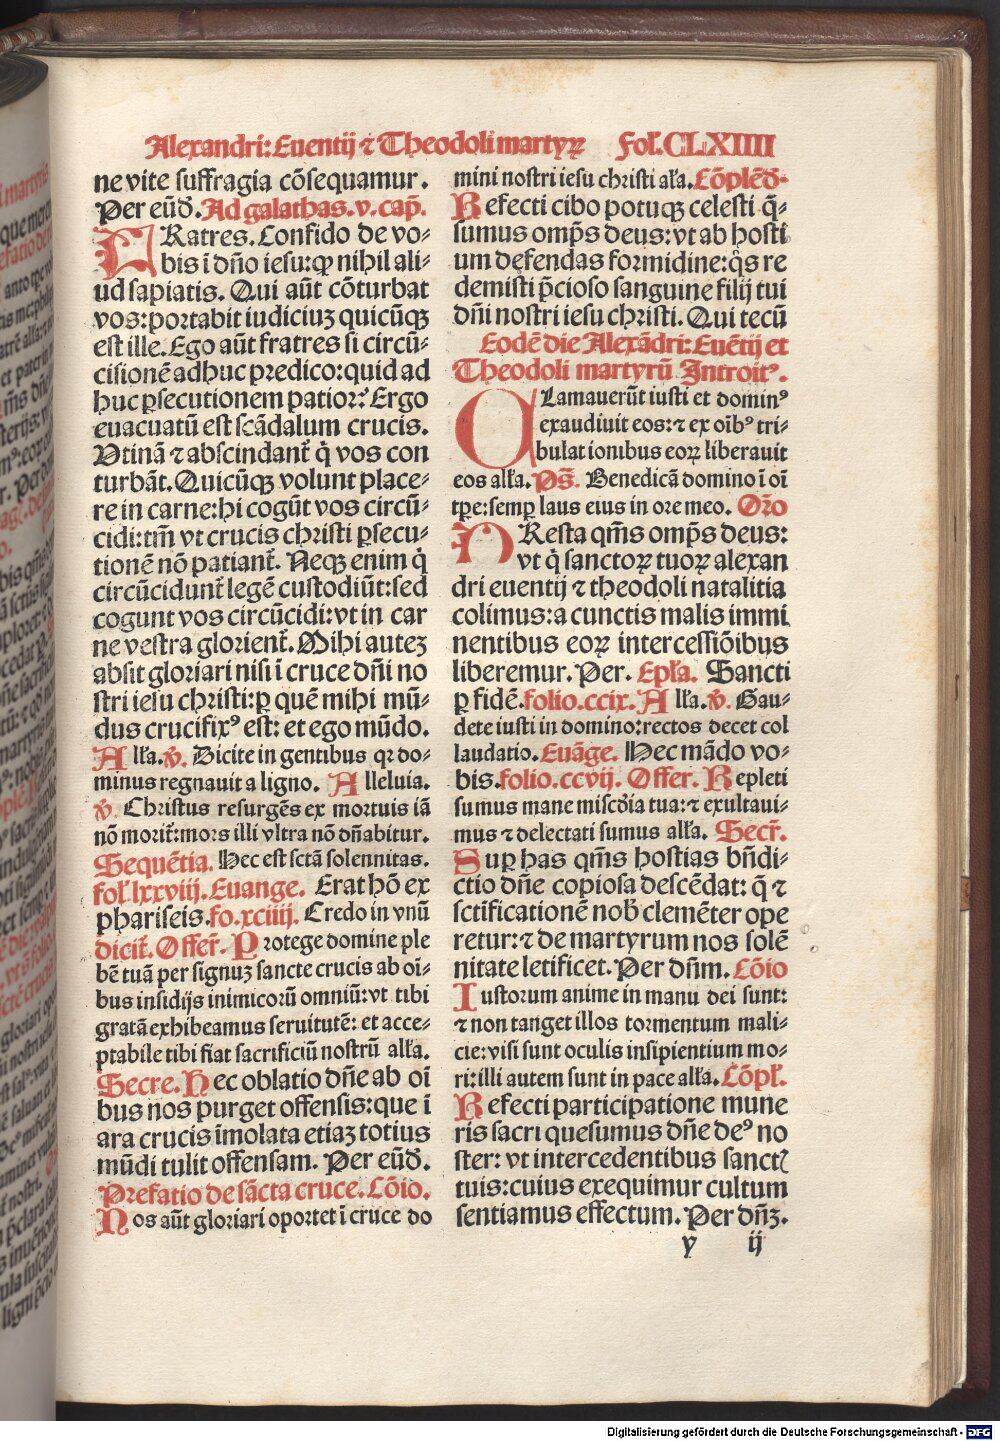 Alexandri: Euentij ⁊ Theodoli martyrꝝ Fol. CLXIIII
ne vite suffragia cōsequamur.
Per eūd. Ad galathas. v. cap̄.
FRatres. Confido de vo⸗
bis ī dn̄o iesu: ꝙ nihil ali⸗
ud sapiatis. Qui aūt cōturbat
vos: portabit iudiciuꝫ quicūqꝫ
est ille. Ego aūt fratres si circū⸗
cisionē adhuc predico: quid ad
huc ꝑsecutionem patior? Ergo
euacuatū est scādalum crucis.
Vtinā ⁊ abscindant̄ q̇ vos con
turbāt. Quicūqꝫ volunt place⸗
re in carne: hi cogūt vos circū⸗
cidi: tm̄ vt crucis christi ꝑsecu⸗
tionē nō patiant̄. Neqꝫ enim q̇
circūcidunt̄ legē custodiūt: sed
cogunt vos circūcidi: vt in car
ne vestra glorient̄. Mihi auteꝫ
absit gloriari nisi ī cruce dn̄i no
stri iesu christi: ꝑ quē mihi mū⸗
dus crucifixꝰ est: et ego mūdo.
All̄a. v̄. Dicite in gentibus qꝛ do⸗
minus regnauit a ligno. Alleluia.
v̄. Christus resurgēs ex mortuis iā
nō morit̄: mors illi vltra nō dn̄abitur.
Sequētia. Hec est sctā solennitas.
fol. lxxviij. Euange. Erat hō ex
phariseis. fo. xciiij. Credo in vnū
dicit̄. Offer̄. Protege domine ple
bē tuā per signuꝫ sancte crucis ab oī⸗
bus insidijs inimicorū omniū: vt tibi
gratā exhibeamus seruitutē: et acce⸗
ptabile tibi fiat sacrificiū nostrū all̄a.
Secre. Hec oblatio dn̄e ab oī
bus nos purget offensis: que ī
ara crucis īmolata etiaꝫ totius
mūdi tulit offensam. Per eūd.
Prefatio de sācta cruce. Cōio.
Nos aūt gloriari oportet ī cruce do
mini nostri iesu christi all̄a. Cōplēd⸗
Refecti cibo potuqꝫ celesti q̄⸗
sumus omp̄s deus: vt ab hosti
um defendas formidine: q̄s re
demisti p̄cioso sanguine filij tui
dn̄i nostri iesu christi. Qui tecū
Eodē die Alexādri: Euētij et
Theodoli martyrū Introitꝰ.
CLamauerūt iusti et dominꝰ
exaudiuit eos: ⁊ ex oībꝰ tri⸗
bulationibus eoꝝ liberauit
eos all̄a. Ps̄. Benedicā domino ī oī
tp̄e: semꝑ laus eius in ore meo. Or̄o
PResta qm̄s omp̄s deus:
vt q̇ sanctoꝝ tuoꝝ alexan
dri euentij ⁊ theodoli natalitia
colimus: a cunctis malis immi
nentibus eoꝝ intercessiōibus
liberemur. Per. Epl̄a. Sancti
ꝑ fidē. folio. ccix. All̄a. v̄. Gau⸗
dete iusti in domino: rectos decet col
laudatio. Euāge. Hec mādo vo⸗
bis. folio. ccvij. Offer. Repleti
sumus mane mīscd̄ia tua: ⁊ exultaui⸗
mus ⁊ delectati sumus all̄a. Secr̄.
Suꝑ has qm̄s hostias bn̄di⸗
ctio dn̄e copiosa descēdat: q̄ ⁊
sctificationē nob̄ clemēter ope
retur: ⁊ de martyrum nos solē
nitate letificet. Per dn̄m. Cōio
Iustorum anime in manu dei sunt:
⁊ non tanget illos tormentum mali⸗
cie: visi sunt oculis insipientium mo⸗
ri: illi autem sunt in pace all̄a. Cōpl̄.
Refecti participatione mune
ris sacri quesumus dn̄e deꝰ no
ster: vt intercedentibus sanctꝭ
tuis: cuius exequimur cultum
sentiamus effectum. Per dn̄ꝫ.
y ij
Digitalisierung gefördert durch die Deutsche Forschungsgemeinschaft - DFG